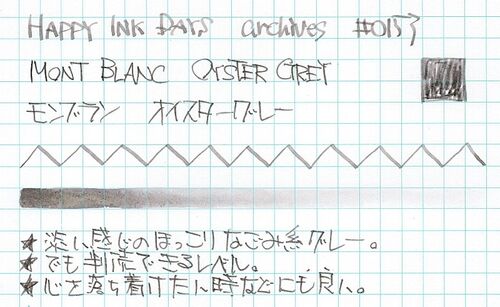 HAPPY INK DAYS archives #0153
MONT BLANC OYSTER GREY
モンブラン オイスターグレー
★淡い感じのほっこりなごみ系グレー。
★でも判読できるレベル。
★心を落ち着けたい時などにも良い。